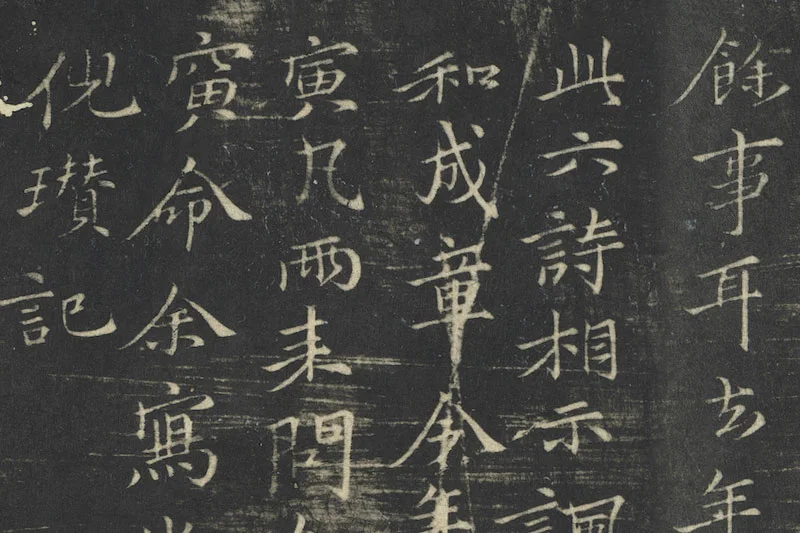 餘事耳去年
此六詩相示諷
和成章今年
寅凡兩来問
寅命余寫
倪瓚記